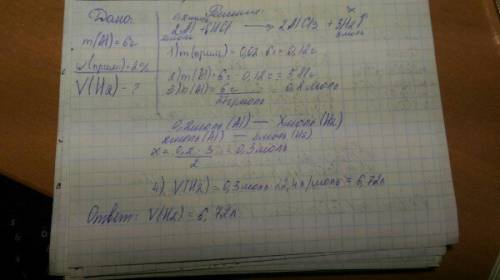 Дано:
m(Al)=6г
ω(прим)=2%
V(H2) - ?
Решение:
0,2моль x
2Al + 6HCl → 2AlCl3 + 3H2↑
2моль 3моль
1) m(прим) = 0,02 · 6г = 0,12г
2) m(Al) = 6г - 0,12г =
= 0,2моль
0,2моль (Al) — xмоль (H2)
2моль (Al) — 3моль (H2)
x = 0,2 · 3 / 2 = 0,3моль
4) V(H2) = 0,3моль · 22,4л/моль = 6,72л
Ответ: V(H2) = 6,72л.